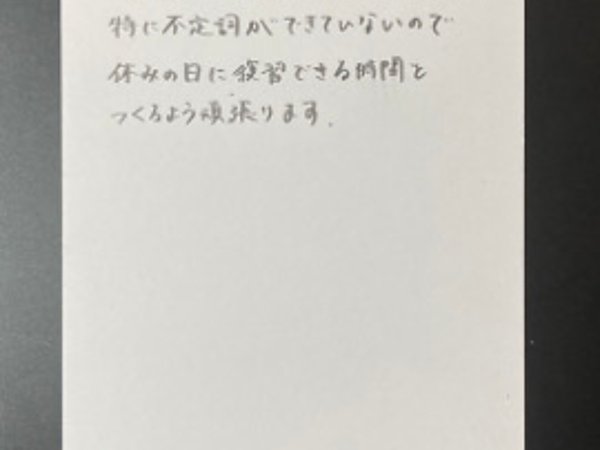 特に不定詞ができていないので
休みの日に復習できる時間を
つくるよう頑張ります.